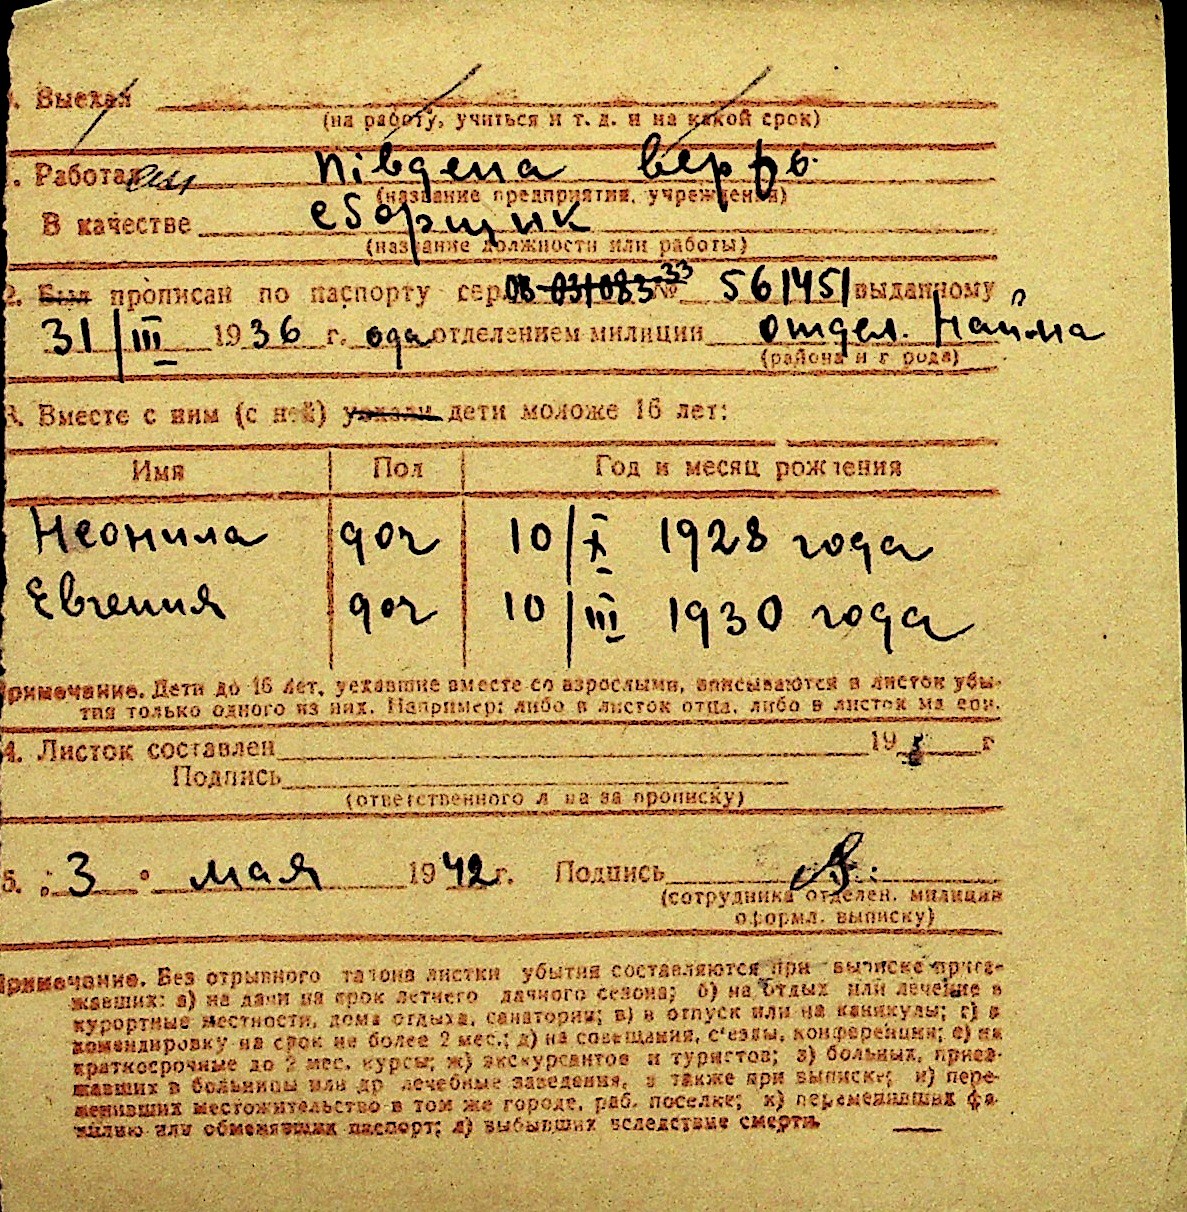 . Выехал
(на работу, учиться и т. д. и на какой срок)
. Работал
Південа верфь
(название предприятия, учреждения)
В качестве сборщик
(название должности или работы)
2. Был прописан по паспорту сер. № 561451 выданному
31/III 1936 г. отделением милиции отдел.
(района и г рода)
3. Вместе с ним (с ней) уехали дети моложе 16 лет:
Имя Пол Год и месяц рождения
Неонила доч 10/X 1928 года
Евгения доч 10/III 1930 года
римечание. Дети до 16 лет, уехавшие вместе со взрослыми, вписываются в листок убы-
тия только одного из них. Например: либо в листок отца, либо в листок ма ери.
4. Листок составлен 19 г
Подпись
(ответственного л ца за прописку)
5. 3 мая 1942 г. Подпись
(сотрудника отделен. милиции
оформл. выписку)
римечание. Без отрывного талона листки убытия составляются при выписке приез-
жавших: а) на дачи на срок летнего дачного сезона; б) на отдых или лечение в
курортные местности, дома отдыха, санатории; в) в отпуск или на каникулы; г) в
командировку на срок не более 2 мес.; д) на совещания, с'езды, конференции; е) на
краткосрочные до 2 мес. курсы; ж) экскурсантов и туристов; з) больных, приез-
жавших в больницы или др лечебные заведения, а также при выписке; и) пере-
менивших местожительство в том же городе, раб. поселке; к) переменивших фа-
милию или обменявших паспорт; л) выбывших вследствие смерти.